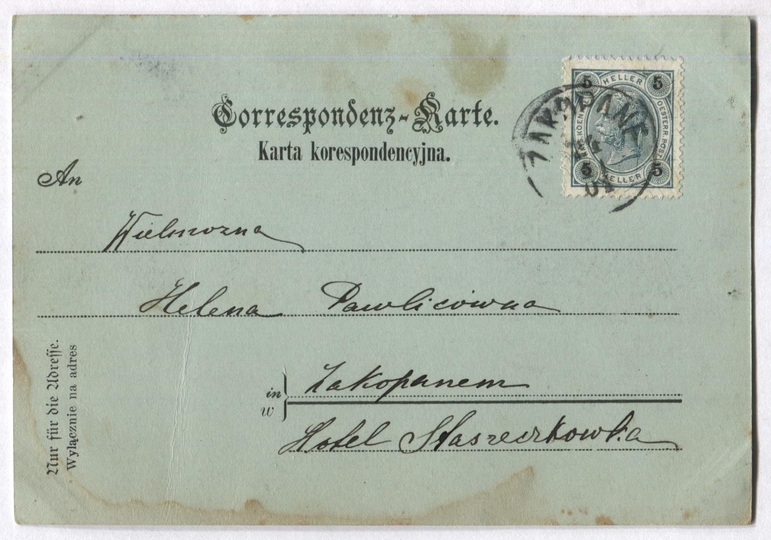 Correspondenz-Karte.
Karta korespondencyjna.
5 HELLER 5
KAIS. KOEN. OESTERR. POST
5 HELLER 5
ZAKOPANE
01
An
Wielmozna
Helena Pawlicówna
in
w
Zakopanem
Hotel Staszeczkowka
Nur für die Adresse.
Wyłącznie na adres